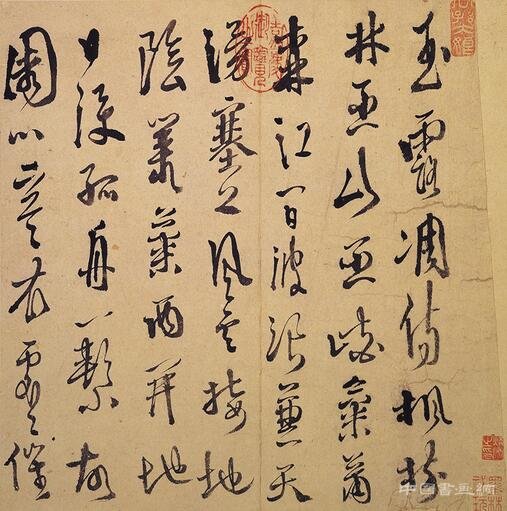 玉露凋傷楓樹
林巫山巫峽氣蕭
森江間波浪兼天
湧塞上風雲接地
陰叢菊兩開他
日淚孤舟一繫故
園心寒衣處〻催
中國書畫網